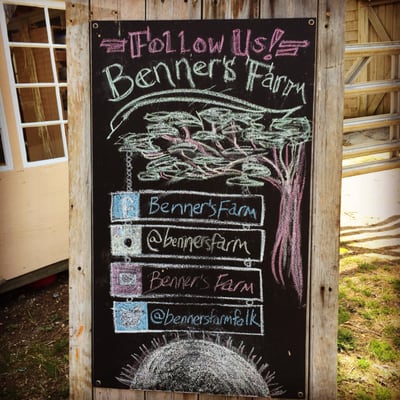 Follow Us!
Benner's Farm
f Benner's Farm
@bennersfarm
Benner's Farm
@bennersfarmfolk